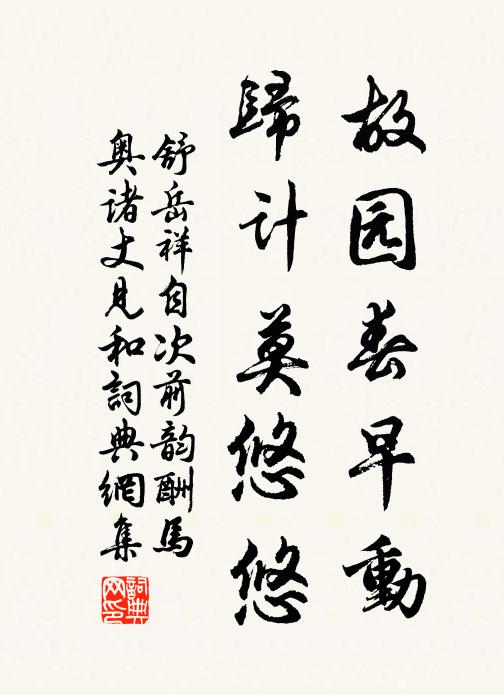 故园春早動
歸计莫悠悠
舒岳祥自次前韵酬馬
奥诸丈見和詞典網集
詞典网印